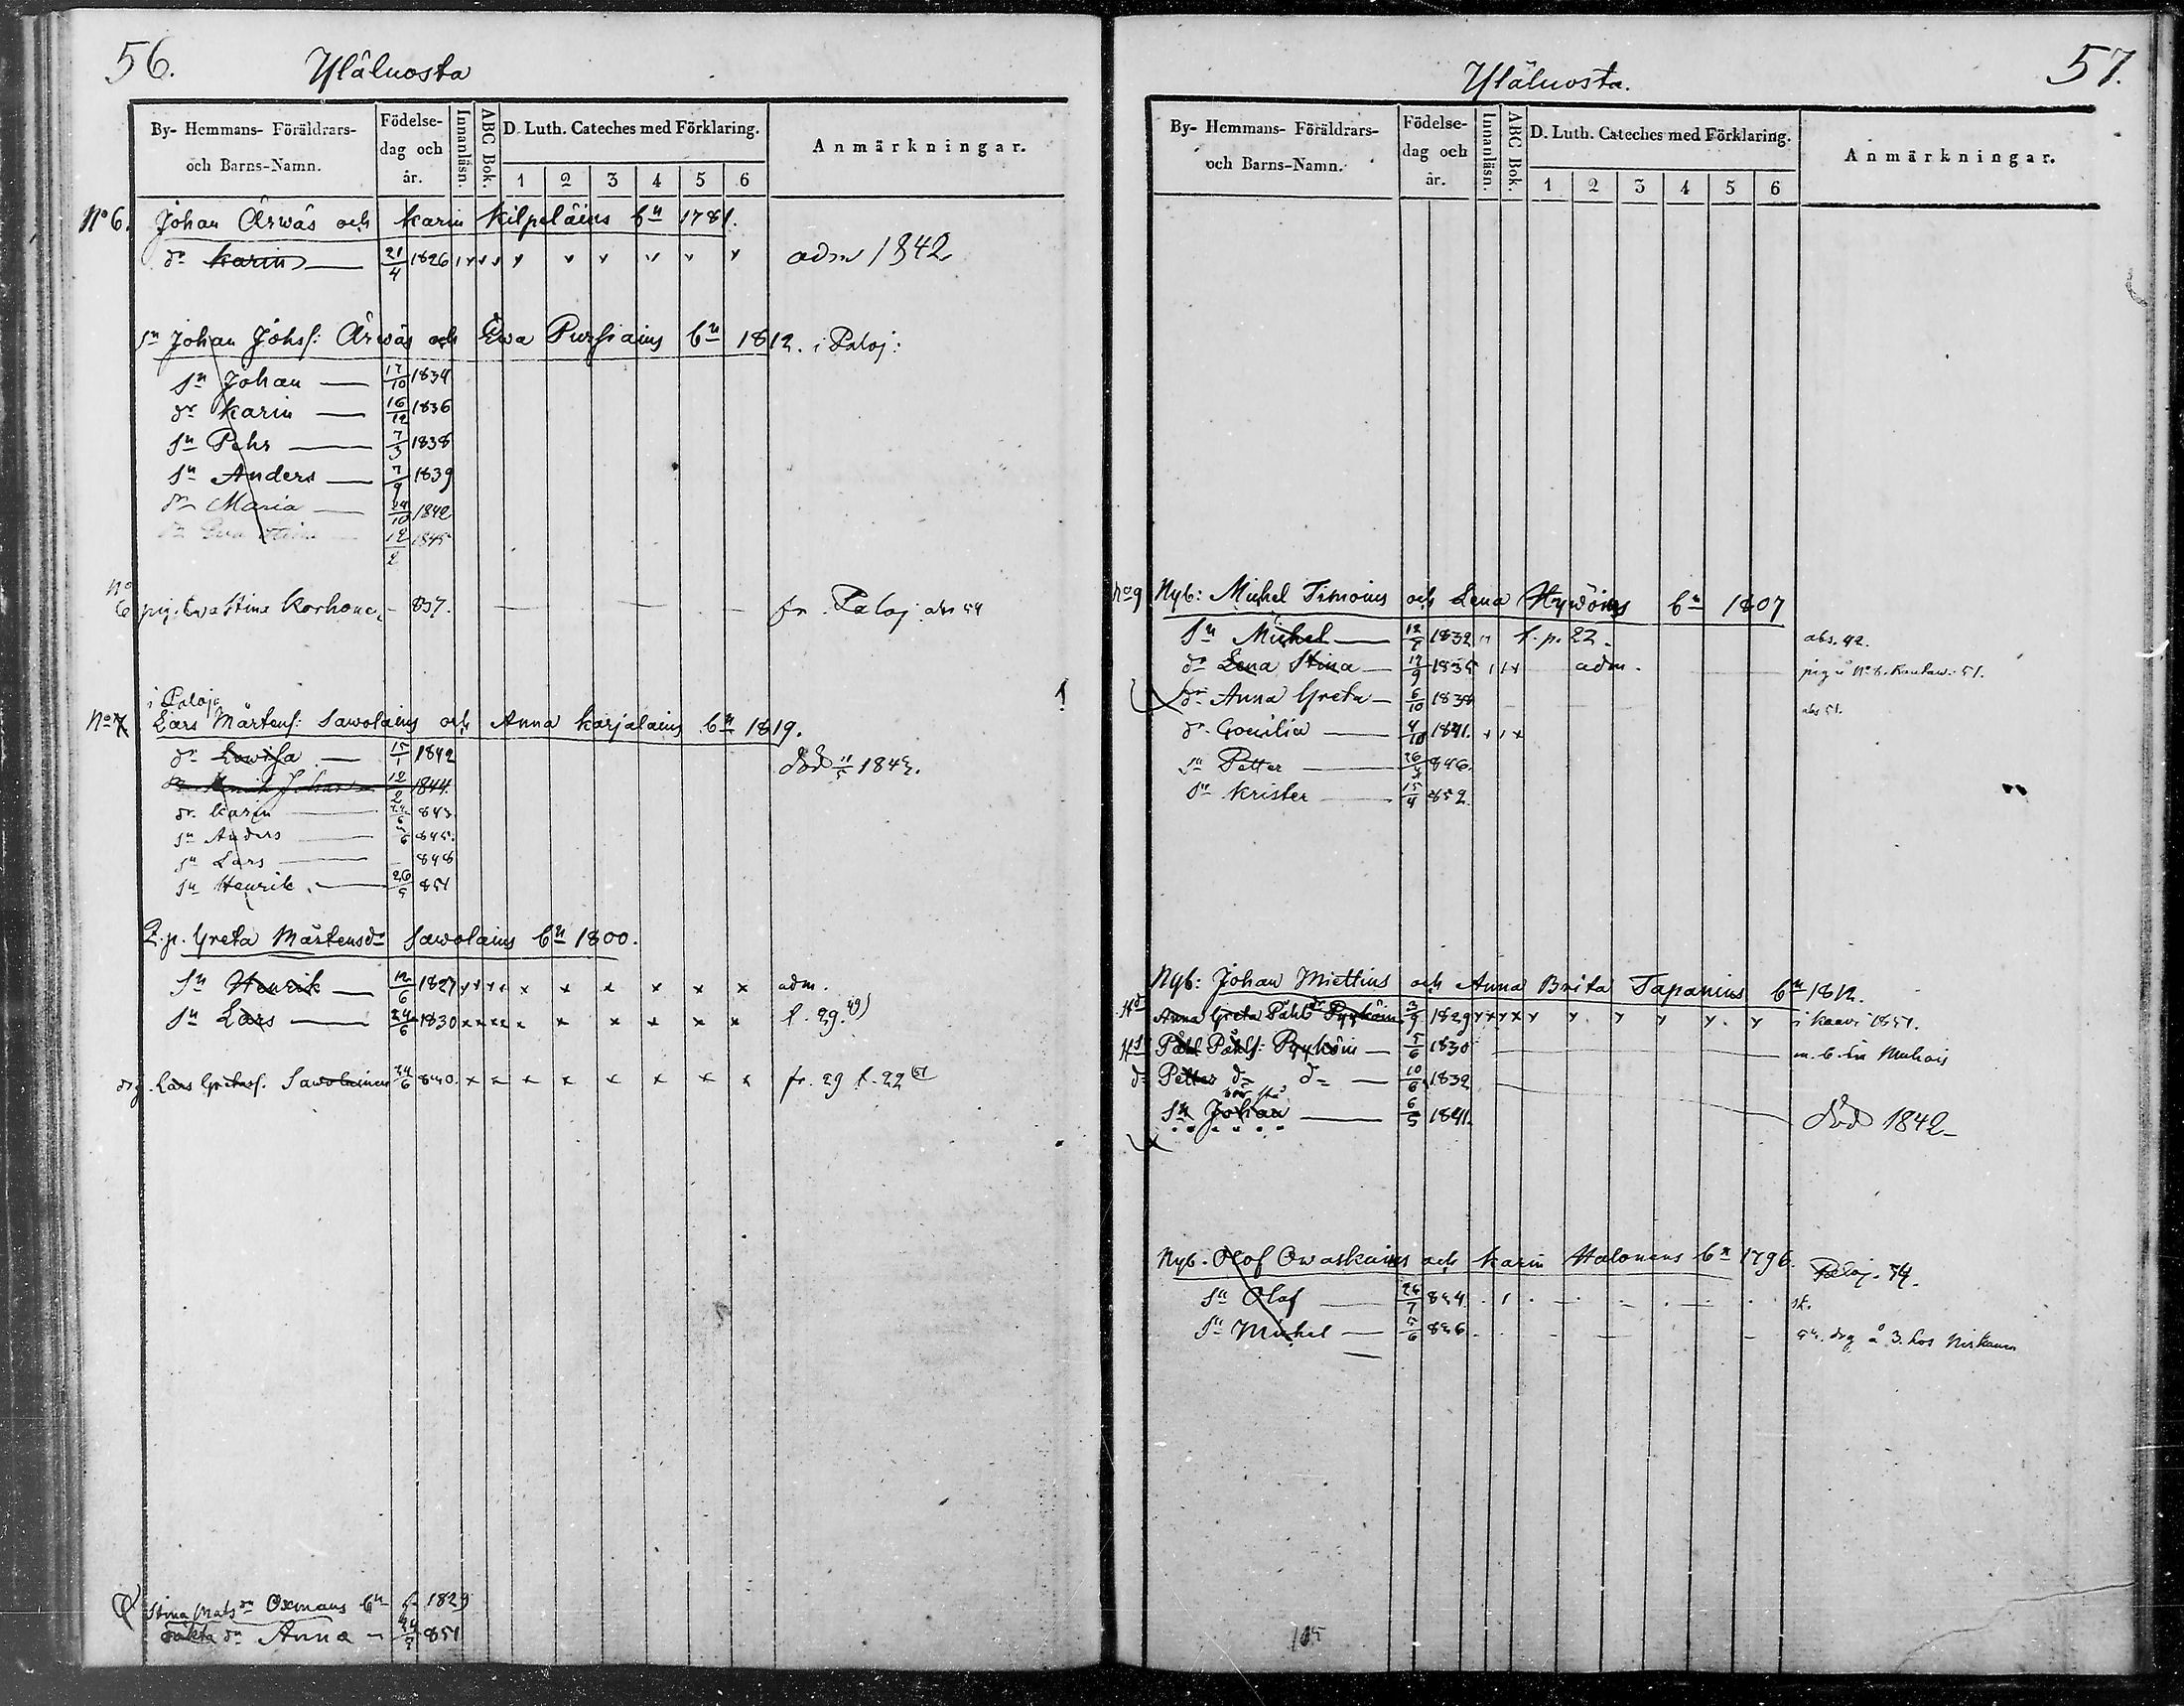 56.
Yläluosta
By- Hemmans- Föräldrars- och Barns-Namn.
Födelse-dag och år.
Innanläsn.
ABC Bok.
D. Luth. Cateches med Förklaring.
1 2 3 4 5 6
Anmärkningar.
No 6. Johan Ärwäs och Karin Kilpeläins bn 1781.
dr Karin 21/4 1826 adm 1842
sn Johan Johsf: Ärwäs och Ewa Pursiains bn 1812. i Paloj:
sn Johan 17/10 1834
dr Karin 16/12 1836
sn Pehr 7/3 1838
sn Anders 7/9 1839
dr Maria 24/10 1842
12/2 1845
No 6 pig. Ewa Stina Korhone 837. fr. Paloj. abs 54
i Paloj:
No 7 Lars Mårtensf: Sawolains och Anna Karjalains bn 1819.
dr Lowisa 15/1 1842 död 11/5 1843.
Johan 12/2 1844.
dr. Karin 843
sn Anders 5/6 845.
sn Lars 848
sn Henrik 26/5 851
Q.p. Greta Mårtensdr Sawolains bn 1800.
sn Henrik 12/6 1827 x x x x x x x x x x adm.
sn Lars 24/6 1830 x x x x x x x x x x f. 29. 49)
drg. Lars Gretasf. Sawolainen 24/6 830. x x x x x x x x fr. 29 f. 22 51
Stina Matsdr Oxmans bn 1829
oäkta dr Anna 851
57.
Yläluosta.
By- Hemmans- Föräldrars- och Barns-Namn.
Födelse-dag och år.
Innanläsn.
ABC Bok.
D. Luth. Cateches med Förklaring.
1 2 3 4 5 6
Anmärkningar.
No 9 Nyb: Michel Timoins och Lena Hywöins bn 1807
sn Michel 1832 f. p. 22. abs. 42.
dr Lena Stina 19/9 1835 adm. pig å No 6. 51.
dr Anna Greta 6/10 1838 abs 51.
dr. Cecilia 4/10 1841.
sn Petter 846.
sn Krister 15/4 852.
Nyb: Johan Miettins och Anna Brita Tapanins bn 1812.
Anna Greta Påhlsdr Pyyköin 3/9 1829 i Kaavi 1851.
Påhl Påhlsf: Pyyköin 5/6 1830
Petter do do 10/6 1832
bör stå
sn Johan 6/5 1841. död 1842
Nyb. Olof Owaskains och Karin Halonens bn 1796. Paloj. 54.
sn Olof 26/7 834.
sn Michel 5/6 836. drg å 3. hos Niskanen
105